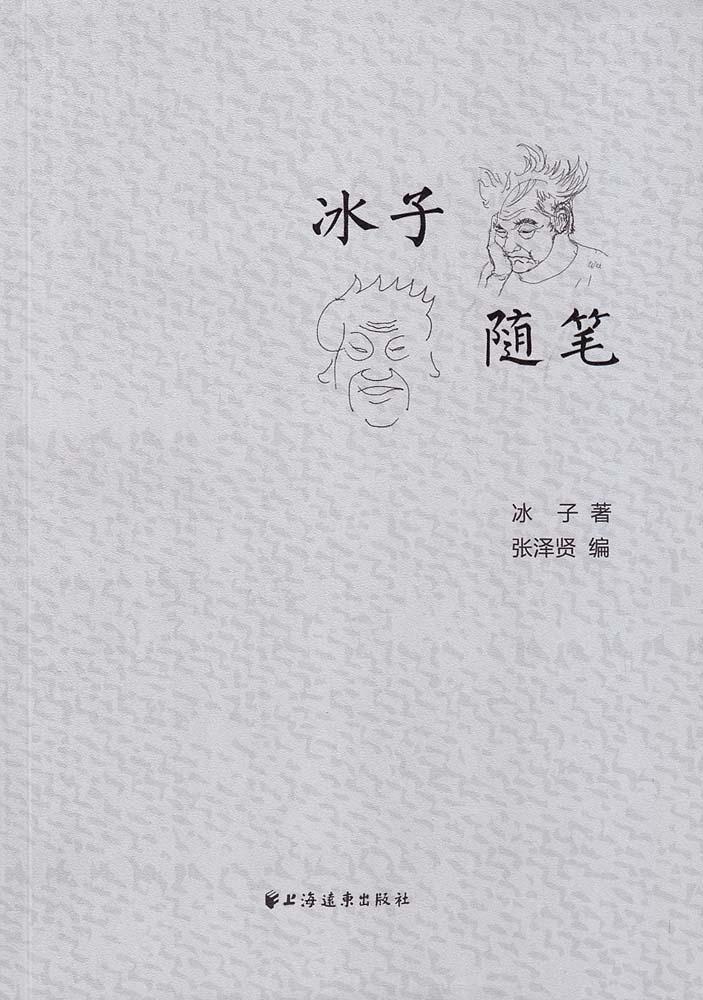 冰子
随笔
冰 子 著
张泽贤 编
上海遠東出版社